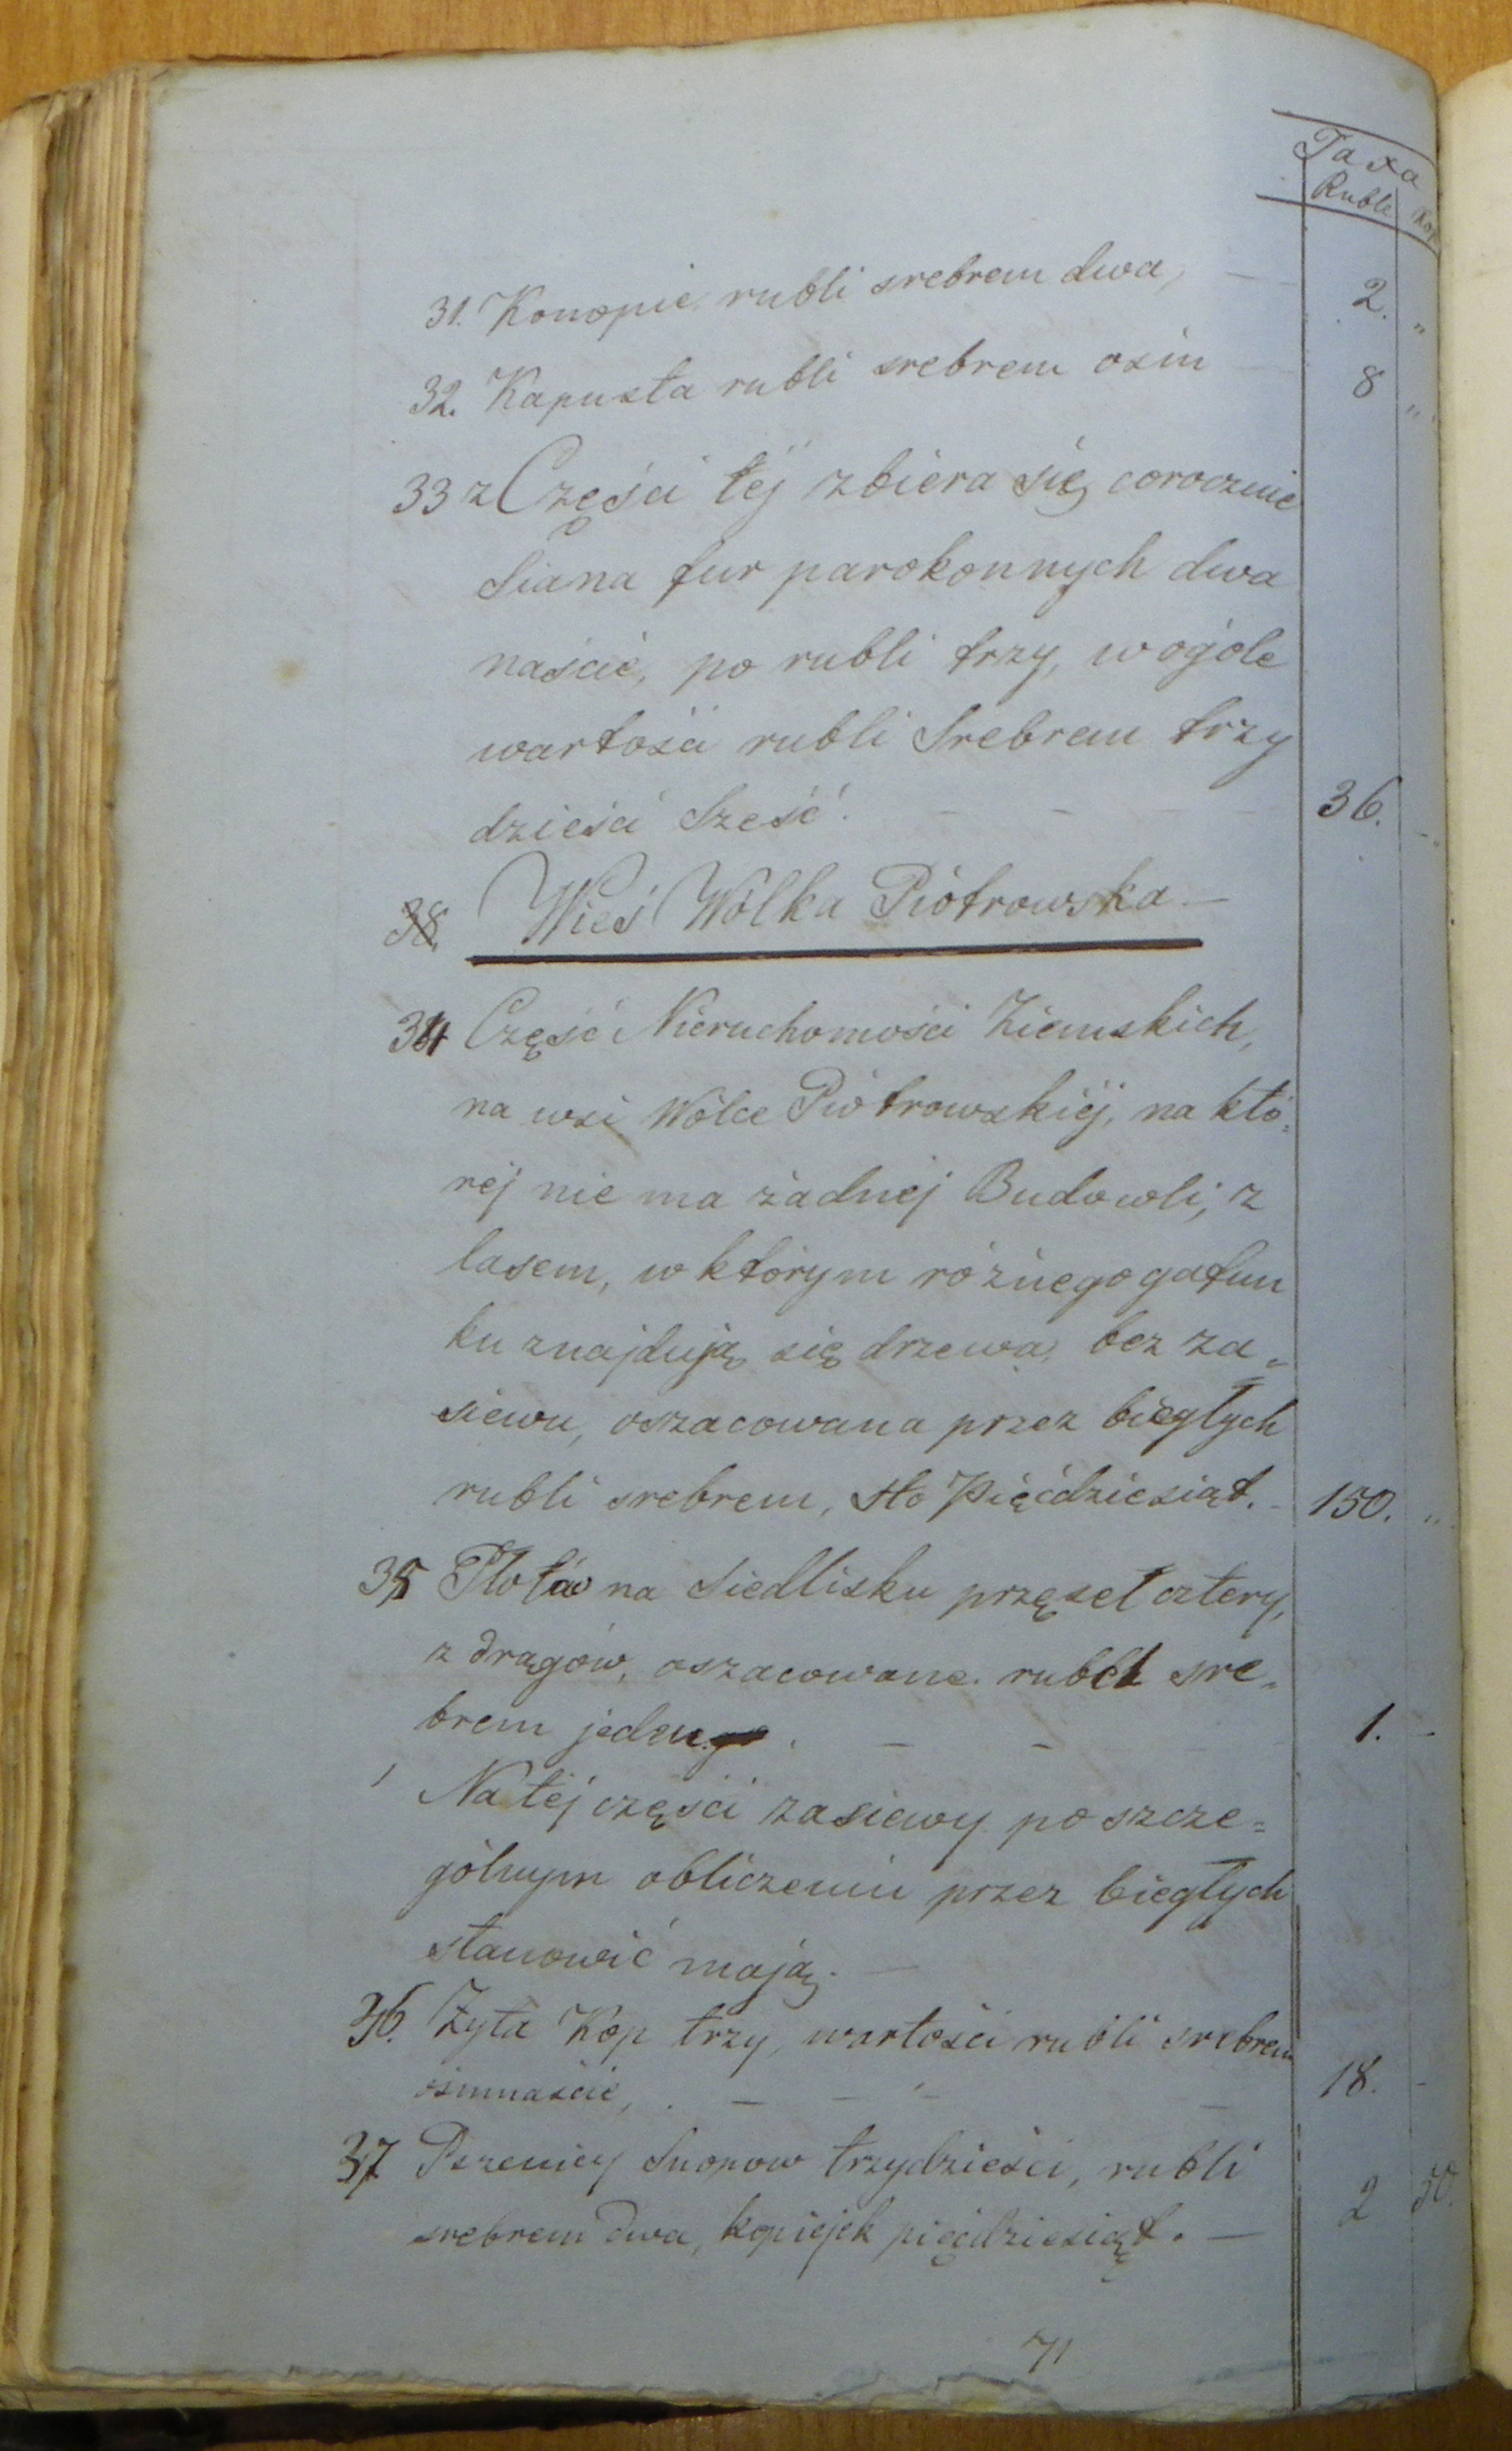 Taxa
Ruble Kop
31. Konopie rubli srebrem dwa, — 2. „
32. Kapusta rubli srebrem osm 8 „
33 z Części téj zbiera się corocznie
Siana fur parokonnych dwa
naście, po rubli trzy, wogóle
wartości rubli Srebrem trzy
dzieści Sześć. — — — 36. —
38. Wieś Wólka Piotrowska —
34 Część Nieruchomości Ziemskich,
na wsi Wólce Piotrowskiéj, na któ=
réj nie ma żadnéj Budowli, z
lasem, w którym różnego gatun
ku znajdują się drzewa, bez za=
siewu, oszacowana przez biegłych
rubli srebrem, sto Pięćdziesiąt. — 150. „
35 Płotów na Siedlisku przęseł cztery,
z drągów, oszacowane rubel sre=
brem jeden. — — 1. —
Na téj części zasiewy po szcze=
gólnym obliczeniu przez biegłych
stanowić mają. —
36. Żyta Kop trzy, wartości rubli srebrem
ośmnaście, — — — 18. —
37 Pszenicy Snopow trzydzieści, rubli
srebrem dwa, kopiejek pięćdziesiąt. — 2 50.
71